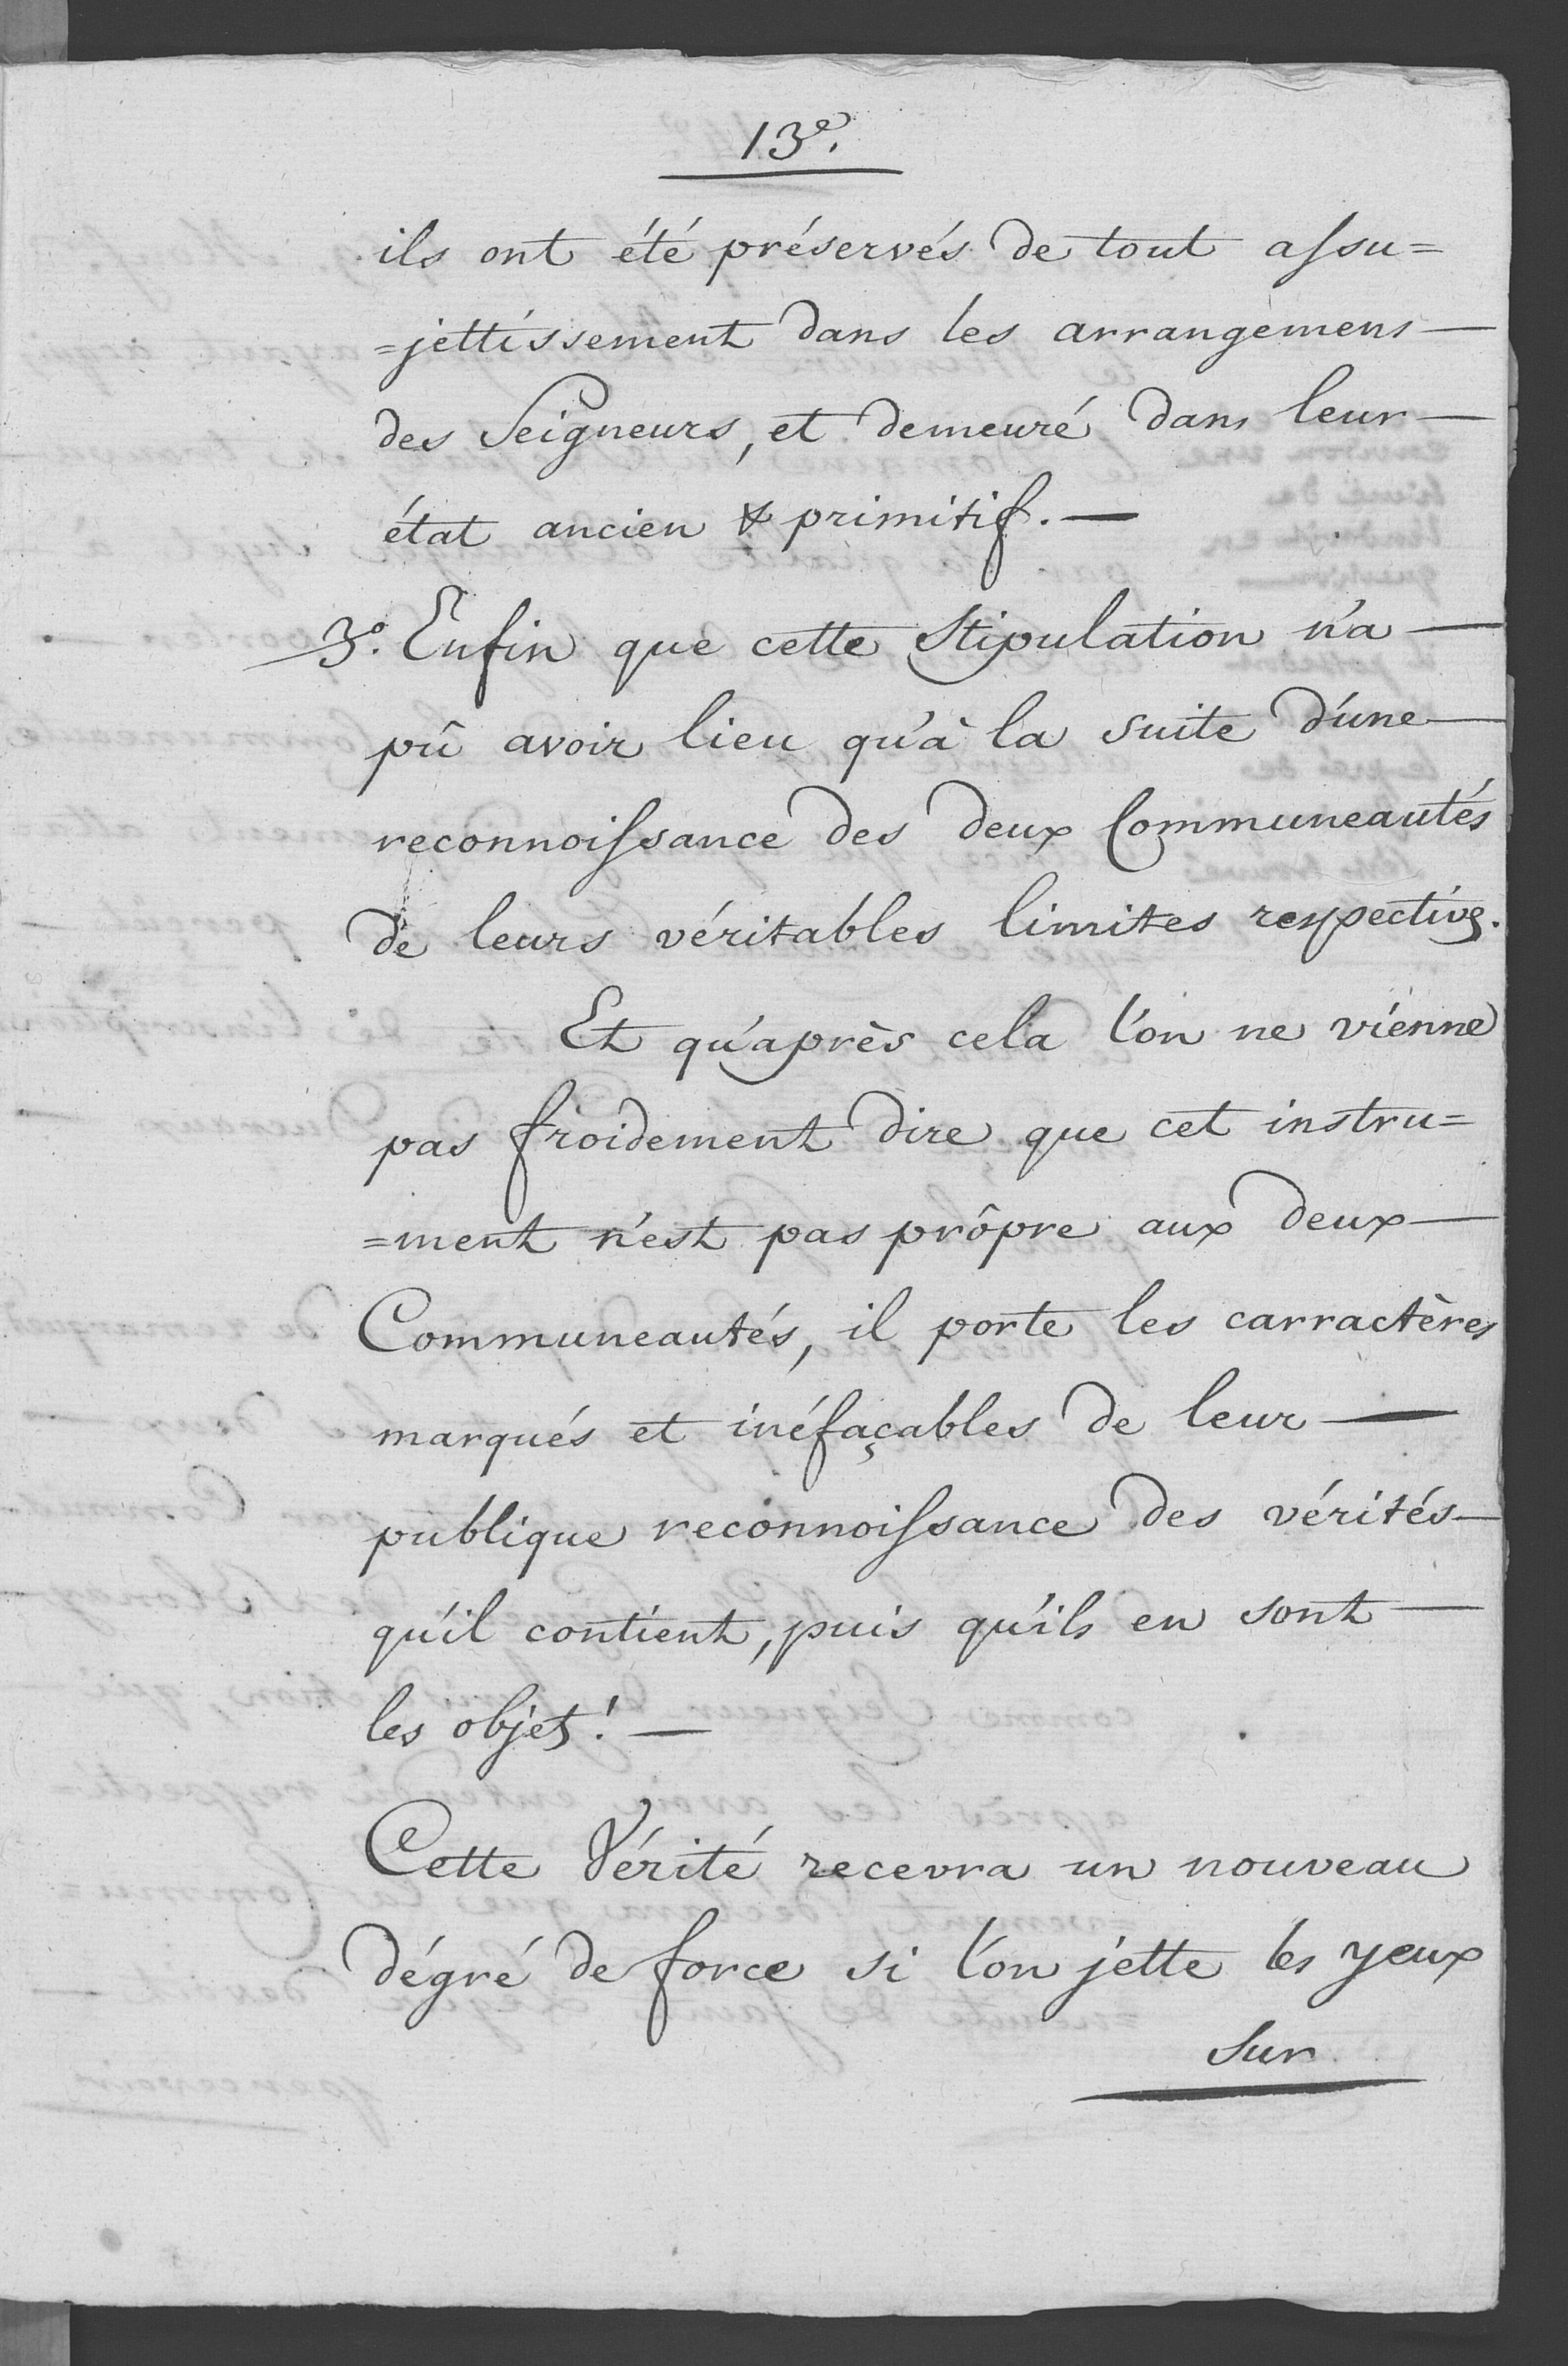 13e.
ils ont été préservés de tout assu=
=jettissement dans les arrangemens —
des Seigneurs, et demeuré dans leur —
état ancien & primitif. —
3o. Enfin que cette Stipulation n'a —
pû avoir lieu qu'à la suite d'une —
reconnoissance des deux Communeautés
de leurs véritables limites respectives.
Et qu'après cela l'on ne vienne
pas froidement dire que cet instru=
=ment n'est pas prôpre aux deux —
Communeautés, il porte les carractères
marqués et inéfaçables de leur —
publique reconnoissance des vérités —
qu'il contient, puis qu'ils en sont —
les objets! —
Cette Vérité recevra un nouveau
dégré de force si l'on jette les yeux
sur